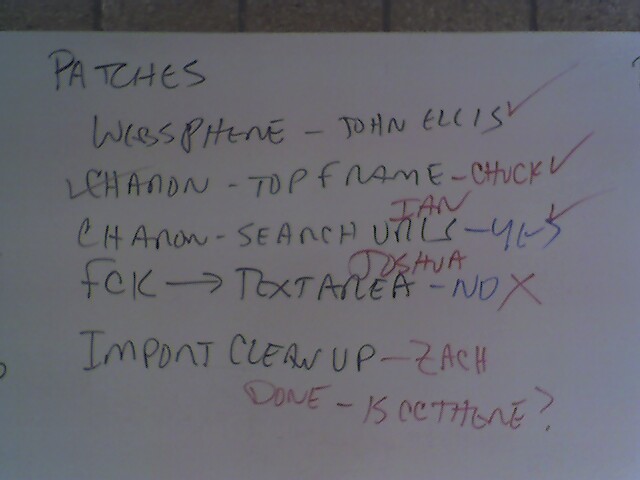 PATCHES
WEBSPHERE - JOHN ELLIS ✓
CHARON - TOP FRAME - CHUCK ✓
IAN
CHARON - SEARCH URLS - YES ✓
JOSHUA
FCK → TEXTAREA - NO X
IMPORT CLEAN UP - ZACH
DONE - IS CC THERE?